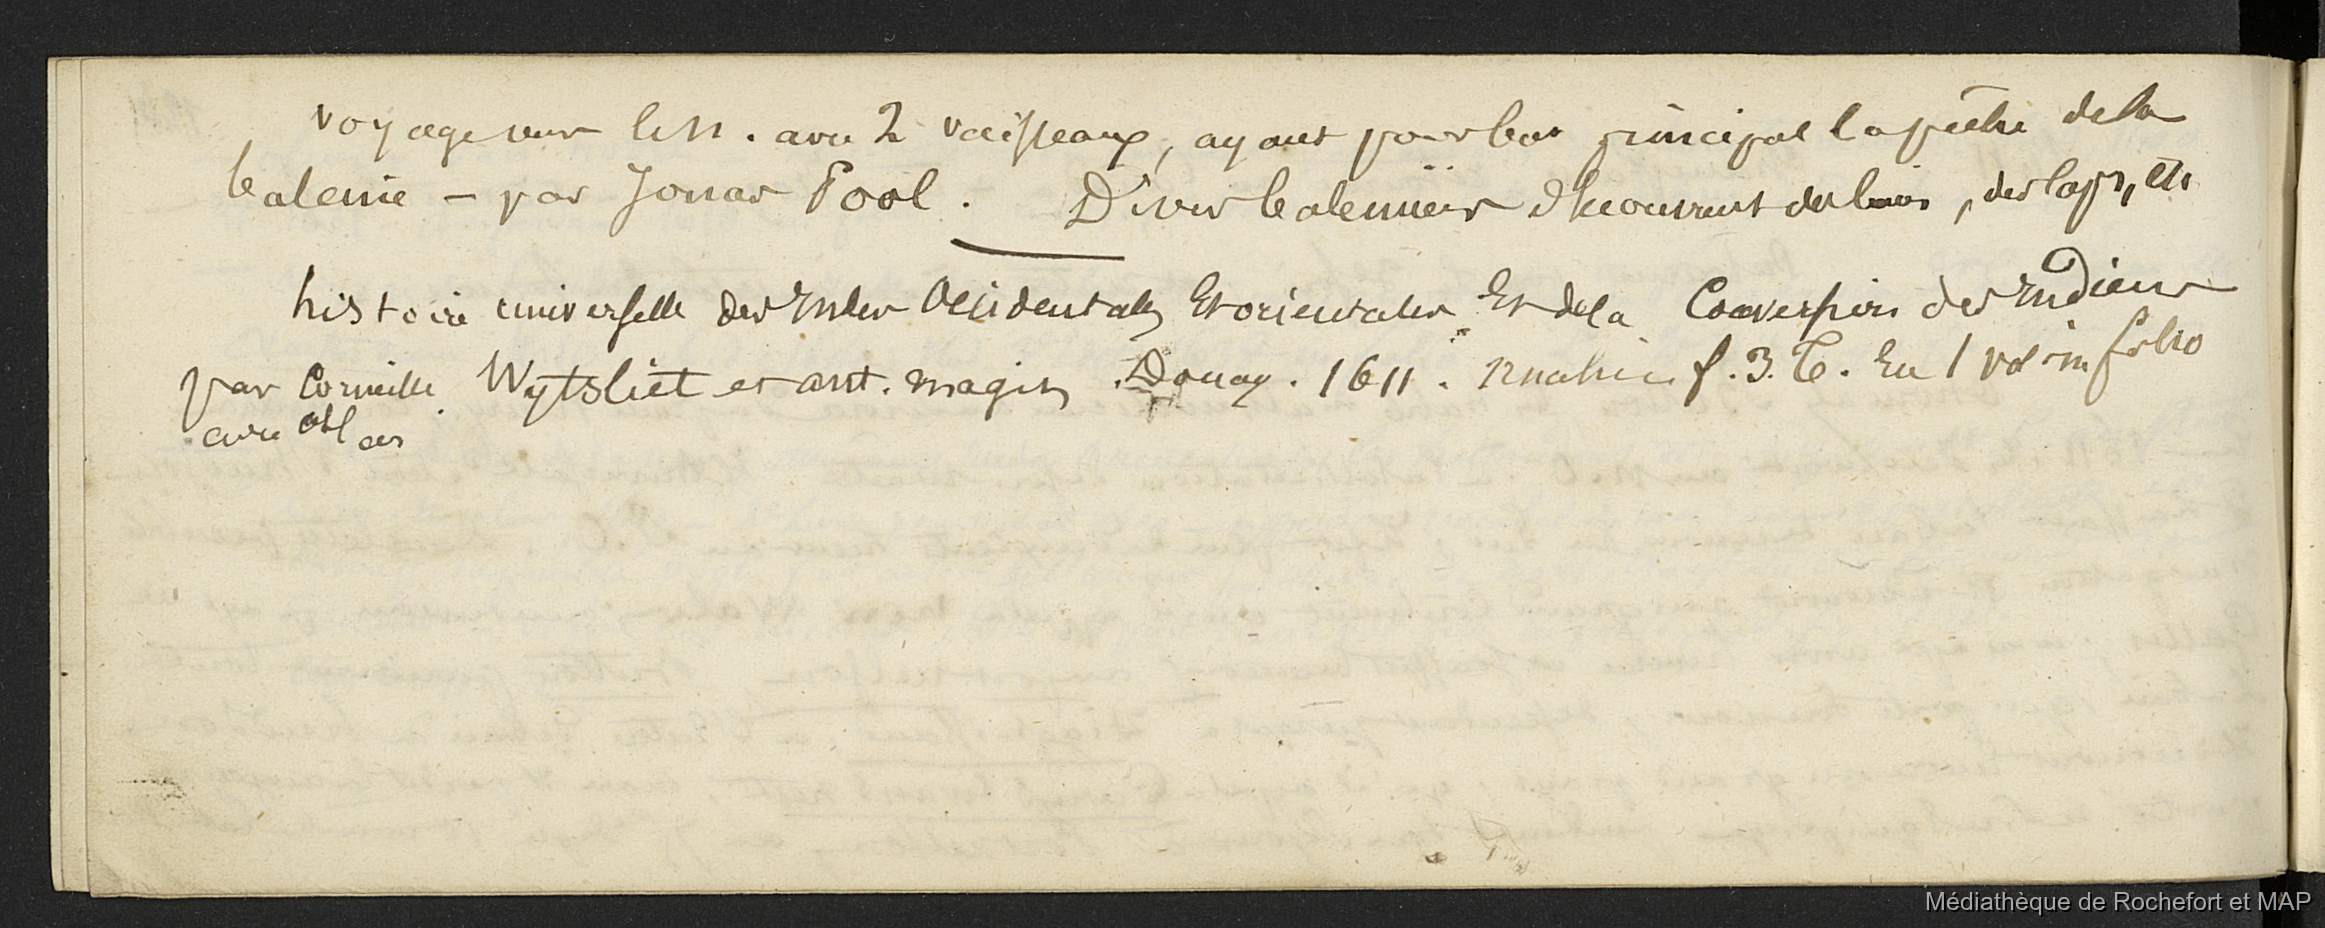 voyage vers le N. avec 2 vaisseaux, ayant pour but principal la pêche de la
baleine — par Jonas Pool. Divers baleiniers découvrent des baies, des caps, etc
histoire universelle des Indes Occidentales Et orientales Et de la Conversion des Indiens
par Corneille Wytsliet et ant. magin, Douay. 1611. f. 3. T. En 1 vol in folio
avec atlas
Médiathèque de Rochefort et MAP